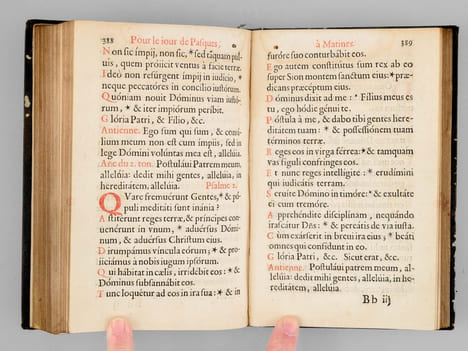 388 Pour le iour de Pasques,
Non sic ímpij, non sic, * sed tãquam pul-
uis, quem proiicit ventus à facie terræ.
Ideò non resúrgent ímpij in iudício, *
neque peccatóres in concílio iustórum.
Quóniam nouit Dóminus viam iustó-
rum, * & iter impiórum períbit.
Glória Patri, & Fílio, &c.
Antienne. Ego sum qui sum, & consí-
lium meum non est cum ímpiis, sed in
lege Dómini volúntas mea est, allelúia.
Añe du 2. ton. Postuláui Patrem meum,
allelúia: dedit mihi gentes, allelúia, in
hereditátem, allelúia. Psalme 2.
QVare fremuérunt Gentes, * & pó-
puli meditáti sunt inánia?
Astitérunt reges terræ, & príncipes con-
uenérunt in vnum, * aduérsus Dómi-
num, & aduérsus Christum eius.
Dirumpámus víncula eórum; * & pro-
iiciámus à nobis iugum ipsórum.
Qui hábitat in cælis, irridébit eos: * &
Dóminus subsannábit eos.
Tunc loquétur ad eos in ira sua: * & in
à Matines. 389
furóre suo conturbábit eos.
Ego autem constitútus sum rex ab eo
super Sion montem sanctum eius: * præ-
dicans præcéptum eius.
Dóminus dixit ad me: * Fílius meus es
tu, ego hódie génui te.
Póstula à me, & dabo tibi gentes here-
ditátem tuam: * & possessiónem tuam
términos terræ.
Reges eos in virga férrea: * & tamquam
vas fíguli confrínges eos.
Et nunc reges intellígite: * erudímini
qui iudicátis terram.
Seruíte Dómino in timóre: * & exultáte
ei cum tremóre.
Apprehéndite disciplínam, nequándo
irascátur Dñs: * & pereátis de via iusta.
Cùm exárserit in breui ira eius, * beáti
omnes qui confídunt in eo.
Glória Patri, &c. Sicut erat, &c.
Antienne. Postuláui patrem meum, al-
lelúia: dedit mihi gentes, allelúia, in he-
reditátem, allelúia.
Bb iij